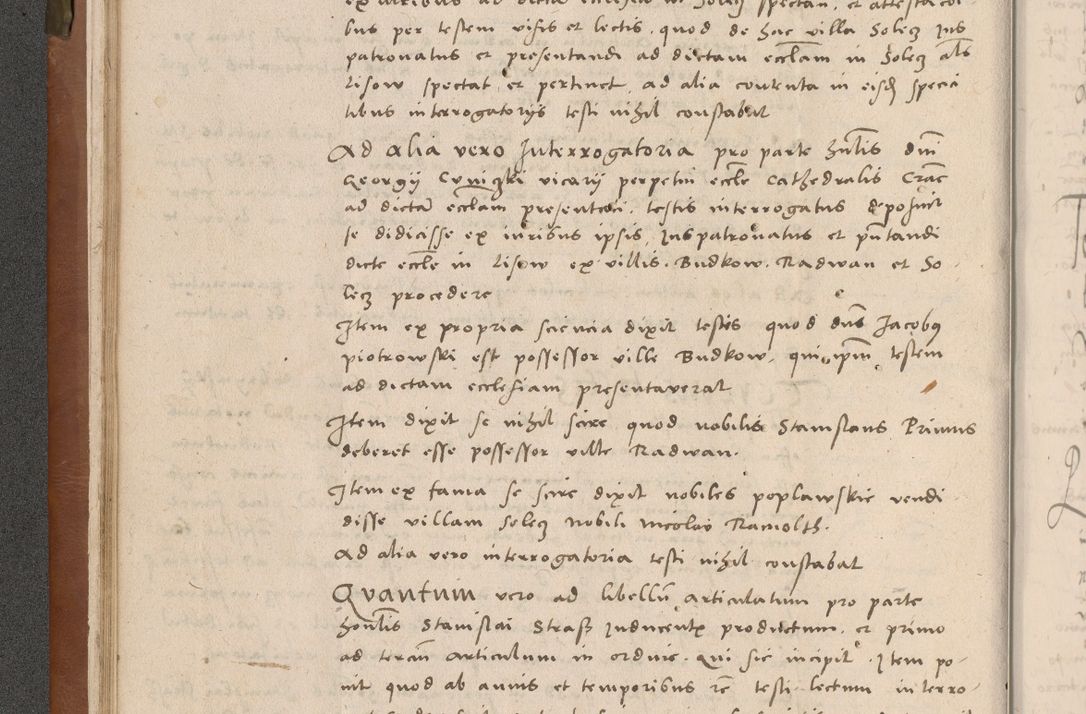 bus per testem visis et lectis. quod de hac villa Solecz Jus
patronatus et presentandi ad dictam eccl̄am in Solecz als
Lisow spectat et pertinet, ad alia contenta in eisd speci
tibus interrogatorys testi nihil constabat
Ad Alia vero Interrogatoria pro parte hnlis dni
Georgij Cuniczki vicarij perpetui eccle Cathedralis Crac
ad dictā eccl̄am presentati. testis interrogatus deposuit
se didicisse ex iuribus ipsis, Juspatronatus et pn̄tandi
dicte eccle in Lisow ex villis. Budkow. Radwan et So
lecz procedere
Item ex propria sciencia dixit testis quod dns Jacobg
piotrowski est possessor ville Budkow, qui ipm testem
ad dictam ecclesiam presentaverat
Item dixit se nihil scire quod nobilis Stanislaus Primus
deberet esse possessor ville Radwan.
Item ex fama se scire dixit nobiles poplawskie vendi
disse villam Solecz nobili Nicolao Ramolth.
Ad alia vero interrogatoria testi nihil constabat
Quantum vero ad libellū articulatum pro parte
honlis Stanislai Straß Inducente productum. et primo
ad terciū articulum in ordine. qui sic incipit. Item po-
nit quod ab annis et temporibus re testi lectum interro-